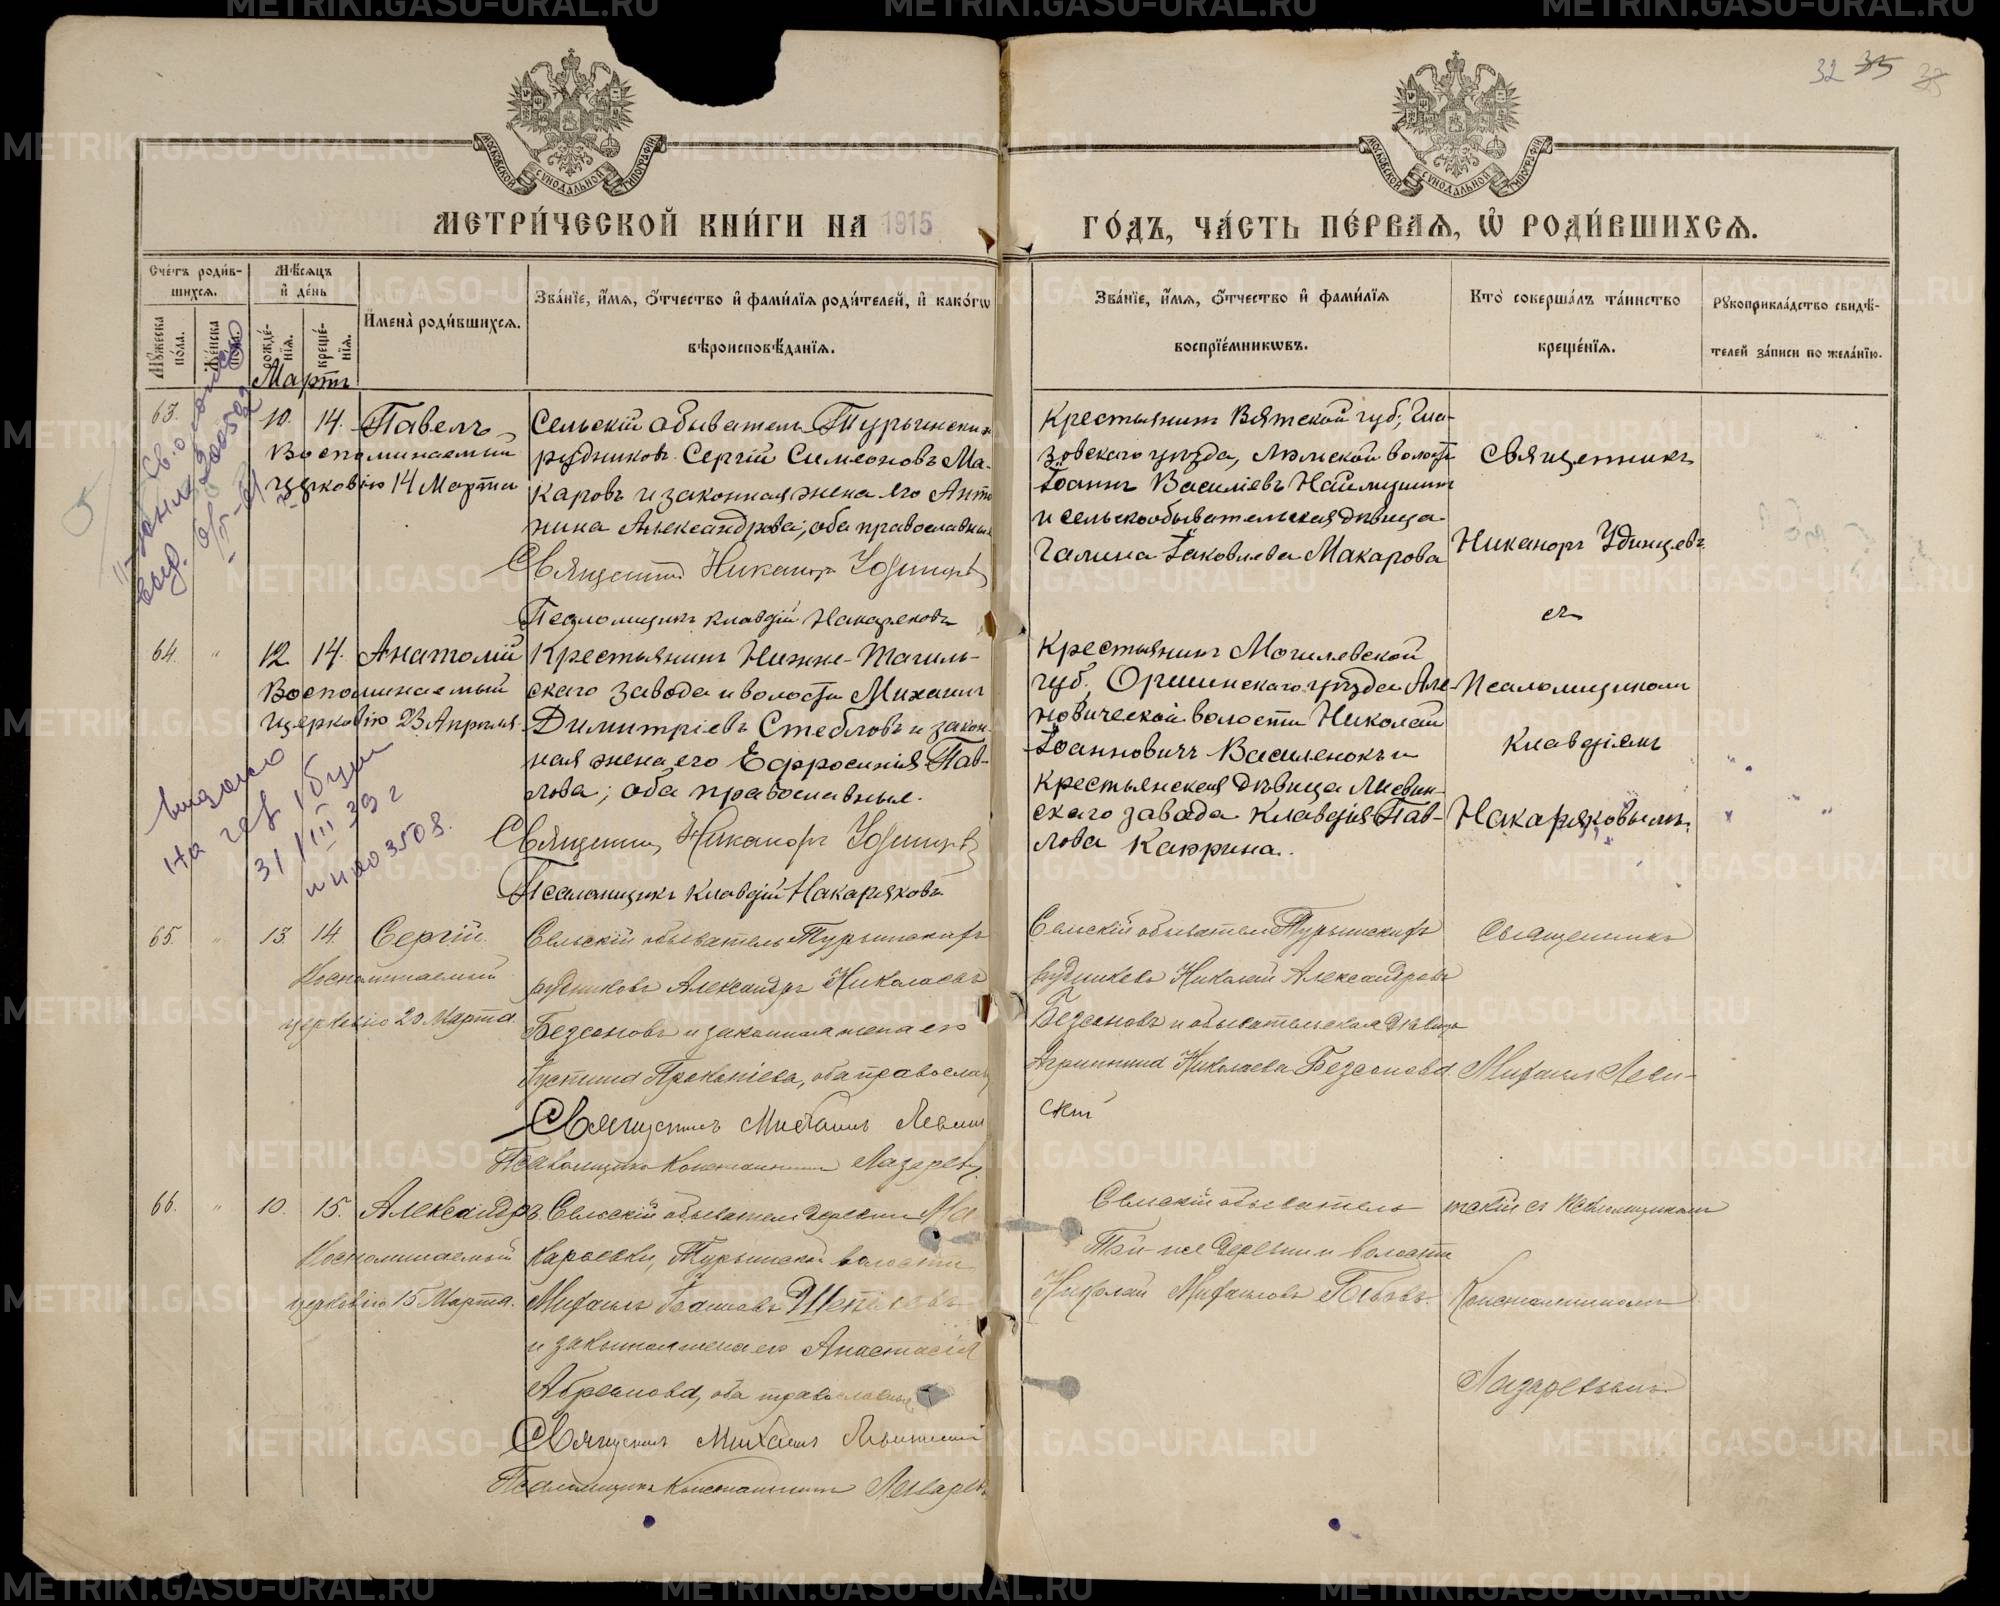 32 35
МЕТРИ́ЧЕСКОЙ КНИ́ГИ НА 1915
ГО́ДЪ, ЧА́СТЬ ПЕ́РВАЯ, Ѽ РОДИ́ВШИХСЯ.
МОСКОВСКОЙ СѴНОДАЛЬНОЙ ТИПОГРАФІИ
МОСКОВСКОЙ СѴНОДАЛЬНОЙ ТИПОГРАФІИ
Сче́тъ роди́вшихся.
Му́жеска по́ла.
Же́нска по́ла.
Мѣ́сяцъ и҆ де́нь
рожде́нїя.
креще́нїя.
И҆мена̀ роди́вшихся.
Зва́нїе, и҆́мя, ѻ҆́тчество и҆ фами́лїя роди́телей, и҆ како́гѡ
вѣроисповѣ́данїя.
Зва́нїе, и҆́мя, ѻ҆́тчество и҆ фами́лїя
воспрїе́мникѡвъ.
Кто̀ соверша́лъ та́инство
креще́нїя.
Рꙋкоприкла́дство свидѣ́-
телей за́писи по жела́нїю.
Мартъ
63. 10. 14. Павелъ
Воспоминаемый
церковію 14 Марта
Сельскій обыватель Турьинских
рудников Сергій Симеоновъ Ма-
каровъ и законная жена его Анто
нина Александрова; оба православные
Священник Никаноръ Удинцевъ
Псаломщикъ Клавдій Накаряковъ
Крестьянинъ Вятской губ., Гла-
зовскаго уѣзда, Люмской волости
Іоаннъ Василіевъ Наймушинъ
и сельскообывательская дѣвица
Галина Іаковлева Макарова
Священникъ
Никаноръ Удинцевъ
съ
64. " 12. 14. Анатолій
Воспоминаемый
церковію 23 Апрѣля
Крестьянинъ Нижне-Тагиль-
скаго завода и волости Михаилъ
Димитріевъ Стебловъ и закон-
ная жена его Ефросинія Пав-
лова; оба православные.
Священник Никаноръ Удинцевъ
Псаломщикъ Клавдій Накаряковъ
Крестьянинъ Могилевской
губ., Оршинскаго уѣзда Але-
новической волости Николай
Іоанновичъ Василенокъ и
крестьянская дѣвица Лисвин-
скаго завода Клавдія Пав-
лова Каррина.
Псаломщикомъ
Клавдіемъ
Накаряковымъ.
65. " 13. 14. Сергій.
Воспоминаемый
церковію 20 Марта.
Сельскій обыватель Турьинскихъ
рудниковъ Александръ Николаевъ
Безсоновъ и законная жена его
Іустина Прокопіева, оба православн
Священникъ Михаилъ Левит
Псаломщикъ Константинъ Лазаревъ
Сельскій обыватель Турьинскихъ
рудниковъ Николай Александровъ
Безсоновъ и обывательская дѣвица
Агриппина Николаева Безсонова.
Священникъ
Михаилъ Леви-
скій
66. " 10. 15. Александръ.
Воспоминаемый
церковію 15 Марта.
Сельскій обыватель деревни Ма
карьевки, Турьинской волости
Михаилъ Іоанновъ
и законная жена его Анастасія
оба православные
Священникъ Михаилъ
Псаломщикъ Константинъ Лазаревъ
Сельскій обыватель
Той-же деревни и волости
Николай Михаиловъ Бобовъ.
тскій съ псаломщикомъ
Константиномъ
Лазаревымъ
Выдано
31/III 39 г
METRIKI.GASO-URAL.RU